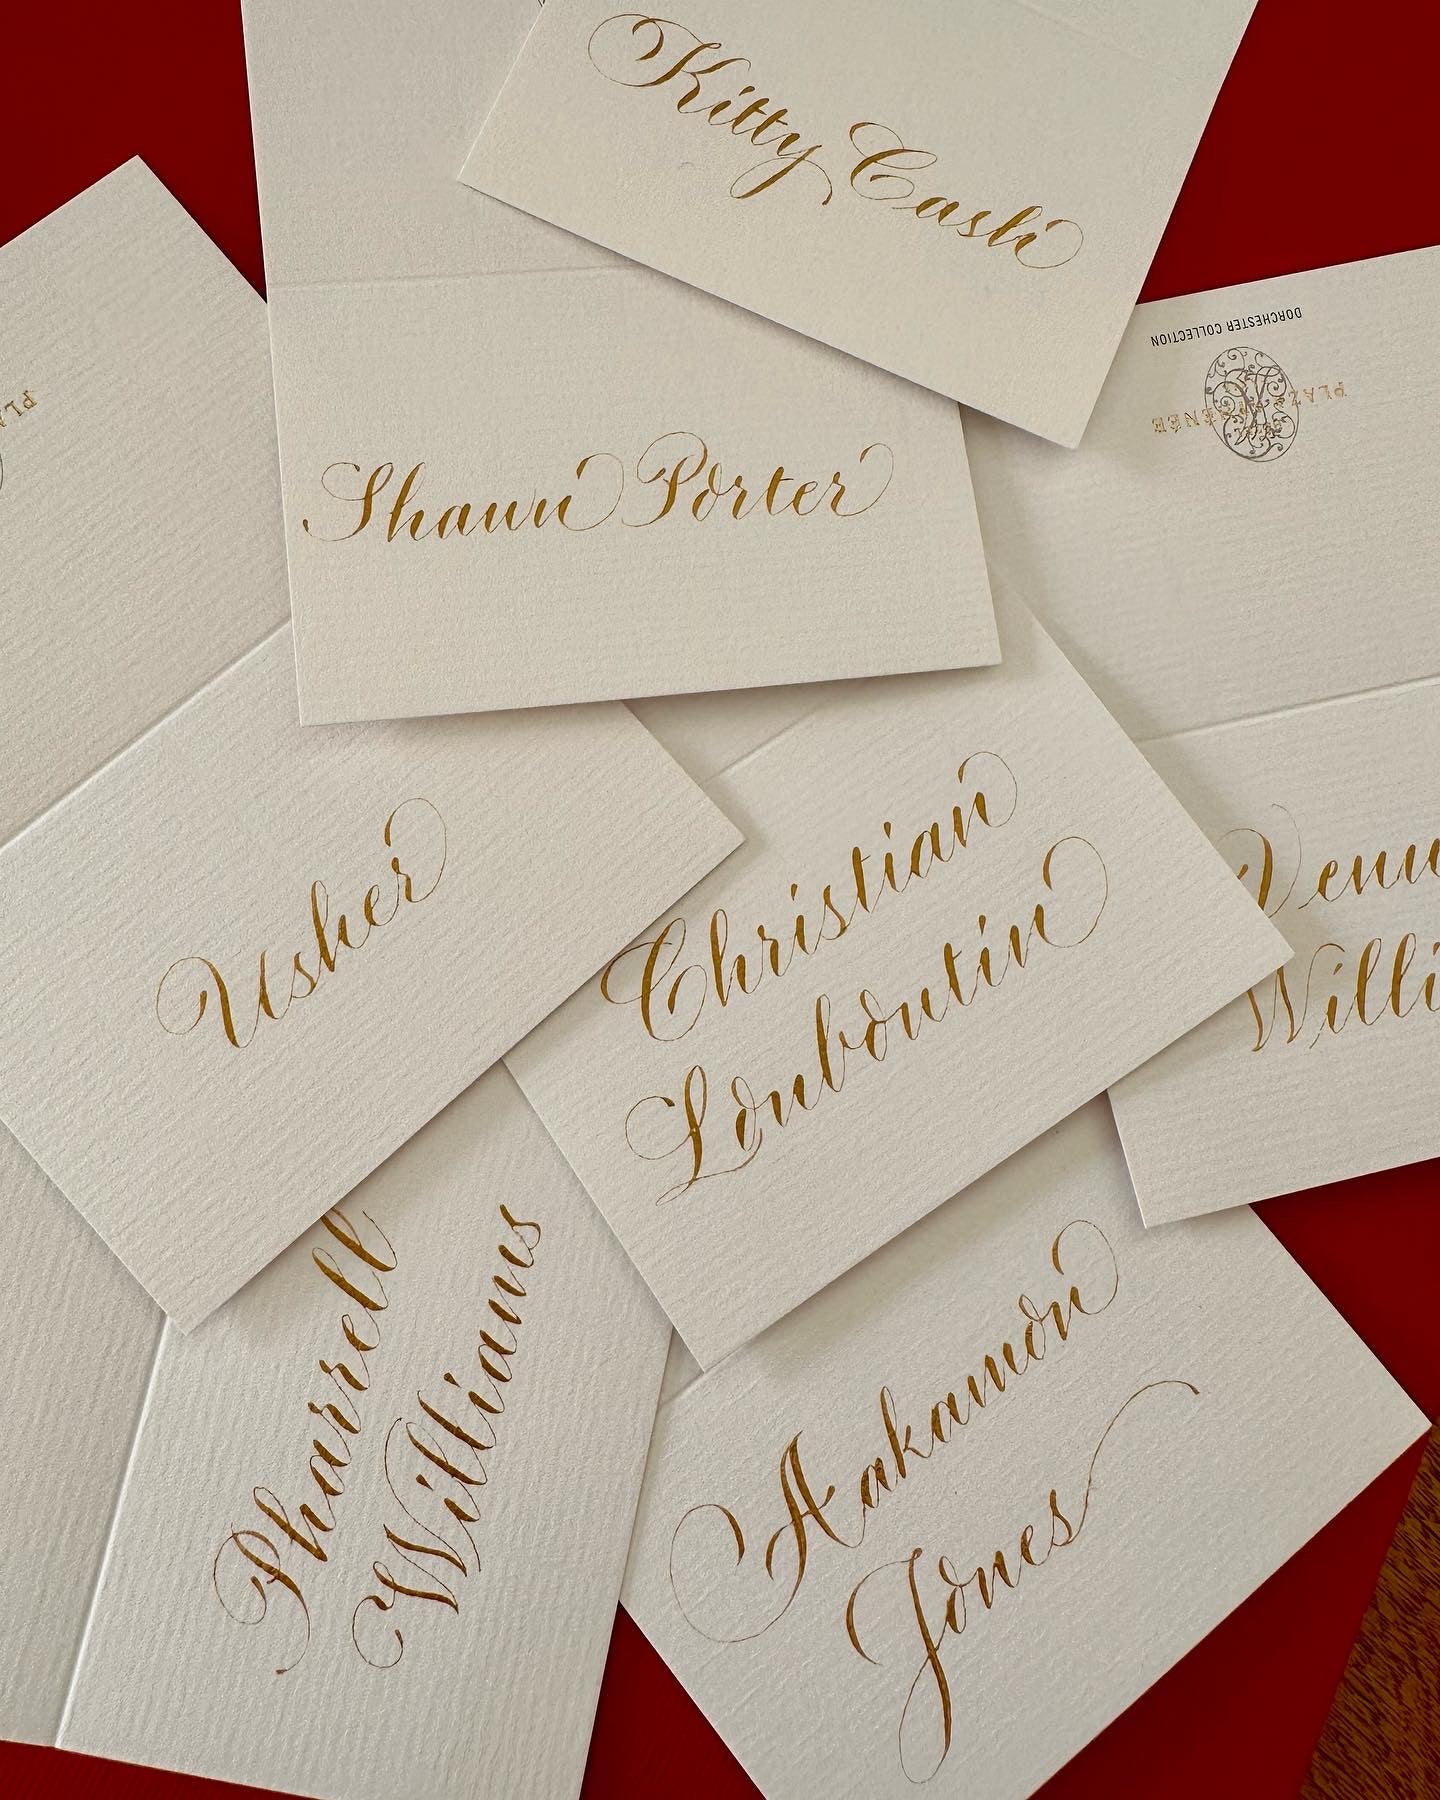 Kitty Cash
DORCHESTER COLLECTION
PLAZA ATHÉNÉE
PLA
Shawn Porter
Usher
Christian
Louboutin
Venu
Willi
Pharrell
Williams
Aakamon
Jones